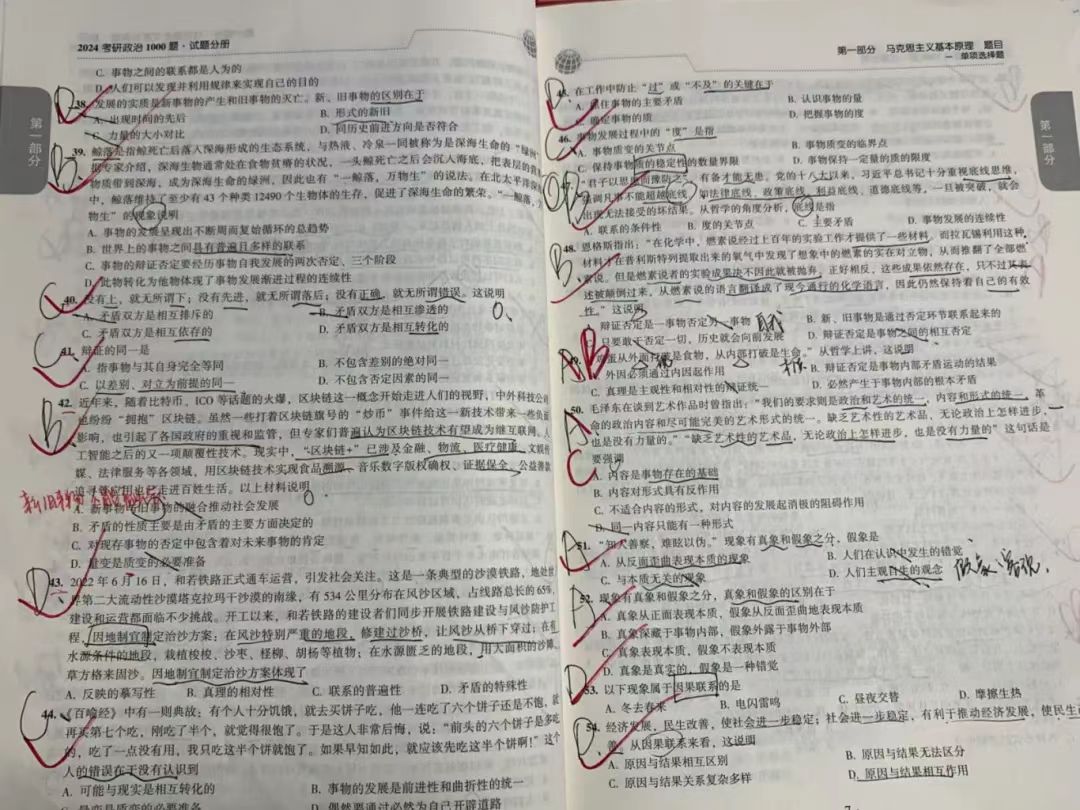 2024 考研政治 1000 题·试题分册
第一部分
C. 事物之间的联系都是人为的
D. 人们可以发现并利用规律来实现自己的目的
D
38. 发展的实质是新事物的产生和旧事物的灭亡。新、旧事物的区别在于
A. 出现时间的先后 B. 形式的新旧
C. 力量的大小对比 D. 同历史前进方向是否符合
B
39. 鲸落是指鲸死亡后落入深海形成的生态系统，与热液、冷泉一同被称为是深海生命的“绿洲”
据专家介绍，深海生物通常处在食物贫瘠的状况，一头鲸死亡之后会沉入海底，把表层的
物质带到深海，成为深海生命的绿洲，因此也有“一鲸落，万物生”的说法。在北太平洋深
中，鲸落维持了至少有 43 个种类 12490 个生物体的生存，促进了深海生命的繁荣。“一鲸落，
物生”的现象说明
A. 事物的发展呈现出不断周而复始循环的总趋势
B. 世界上的事物之间具有普遍且多样的联系
C. 事物的辩证否定要经历事物自我发展的两次否定、三个阶段
D. 此物转化为他物体现了事物发展渐进过程的连续性
C
40. 没有上，就无所谓下；没有先进，就无所谓落后；没有正确，就无所谓错误。这说明
A. 矛盾双方是相互排斥的 B. 矛盾双方是相互渗透的
C. 矛盾双方是相互依存的 D. 矛盾双方是相互转化的
C
41. 辩证的同一是
A. 指事物与其自身完全等同 B. 不包含差别的绝对同一
C. 以差别、对立为前提的同一 D. 不包含否定因素的同一
B
42. 近年来，随着比特币、ICO 等话题的火爆，区块链这一概念开始走进人们的视野，中外科技公司
也纷纷“拥抱”区块链。虽然一些打着区块链旗号的“炒币”事件给这一新技术带来一些负面
影响，也引起了各国政府的重视和监管，但专家们普遍认为区块链技术有望成为继互联网、人
工智能之后的又一项颠覆性技术。现实中，“区块链+”已涉及金融、物流、医疗健康、文娱传
媒、法律服务等各领域，用区块链技术实现食品溯源、音乐数字版权确权、证据保全、公益善款
追寻等应用也已走进百姓生活。以上材料说明
新旧事物
A. 新事物与旧事物的融合推动社会发展
B. 矛盾的性质主要是由矛盾的主要方面决定的
C. 对现存事物的否定中包含着对未来事物的肯定
D. 量变是质变的必要准备
D
43. 2022 年 6 月 16 日，和若铁路正式通车运营，引发社会关注。这是一条典型的沙漠铁路，地处世
界第二大流动性沙漠塔克拉玛干沙漠的南缘，有 534 公里分布在风沙区域，占线路总长的 65%
建设和运营都面临不少挑战。开工以来，和若铁路的建设者们同步开展铁路建设与风沙防护工
程，因地制宜制定治沙方案：在风沙特别严重的地段，修建过沙桥，让风沙从桥下穿过；在有
水源条件的地段，栽植梭梭、沙枣、柽柳、胡杨等植物；在水源匮乏的地段，用大面积的沙障、
草方格来固沙。因地制宜制定治沙方案体现了
A. 反映的摹写性 B. 真理的相对性 C. 联系的普遍性 D. 矛盾的特殊性
C
44. 《百喻经》中有一则典故：有个人十分饥饿，就去买饼子吃，他一连吃了六个饼子还是不饱，就
再买第七个吃，刚吃了半个，就觉得很饱了。于是这人非常后悔，说：“前头的六个饼子是多吃
的，吃了一点没有用，我只吃这半个饼就饱了。如果早知如此，就应该先吃这半个饼啊！”这个
人的错误在于没有认识到
A. 可能与现实是相互转化的 B. 事物的发展是前进性和曲折性的统一
C. 量变是质变的必要准备 D. 偶然要通过必然为自己开辟道路
第一部分 马克思主义基本原理 题目
一 单项选择题
第一部分
D
45. 在工作中防止“过”或“不及”的关键在于
A. 抓住事物的主要矛盾 B. 认识事物的量
C. 确定事物的质 D. 把握事物的度
C
46. 事物发展过程中的“度”是指
A. 事物质变的关节点 B. 事物质变的临界点
C. 保持事物质的稳定性的数量界限 D. 事物保持一定量的质的限度
47. “君子以思患而豫防之。”有备才能无患。党的十八大以来，习近平总书记十分重视底线思维，
强调凡事不能超越底线，如法律底线、政策底线、利益底线、道德底线等，一旦被突破，就会
出现无法接受的坏结果。从哲学的角度分析，底线是指
A. 联系的条件性 B. 度的关节点 C. 主要矛盾 D. 事物发展的连续性
B
48. 恩格斯指出：“在化学中，燃素说经过上百年的实验工作才提供了一些材料，而拉瓦锡利用这种
材料才在普利斯特列提取出来的氧气中发现了想象中的燃素的实在对立物，从而推翻了全部燃
素说。但是燃素说者的实验成果决不因此就被抛弃，正好相反，这些成果依然存在，只不过其表
述被颠倒过来，从燃素说的语言翻译成了现今通行的化学语言，因此仍然保持着自己的有效
性。”这说明
A. 辩证否定是一事物否定另一事物 B. 新、旧事物是通过否定环节联系起来的
C. 只要敢于否定一切，历史就会向前发展 D. 辩证否定是事物之间的相互否定
A B
49. 鸡蛋从外面打破是食物，从内部打破是生命。”从哲学上讲，这说明
A. 外因必须通过内因起作用 B. 辩证否定是事物内部矛盾运动的结果
C. 真理是主观性和相对性的辩证统一 D. 必然产生于事物内部的根本矛盾
A
C
50. 毛泽东在谈到艺术作品时曾指出：“我们的要求则是政治和艺术的统一，内容和形式的统一，革
命的政治内容和尽可能完美的艺术形式的统一。缺乏艺术性的艺术品，无论政治上怎样进步，
也是没有力量的。”“缺乏艺术性的艺术品，无论政治上怎样进步，也是没有力量的”这句话是
要强调
A. 内容是事物存在的基础
B. 内容对形式具有反作用
C. 不适合内容的形式，对内容的发展起消极的阻碍作用
D. 同一内容只能有一种形式
A
51. “知人善察，难眩以伪。”现象有真象和假象之分，假象是
A. 从反面歪曲表现本质的现象 B. 人们在认识中发生的错觉
C. 与本质无关的现象 D. 人们主观自生的观念
假象客观
A
52. 现象有真象和假象之分，真象和假象的区别在于
A. 真象从正面表现本质，假象从反面歪曲地表现本质
B. 真象深藏于事物内部，假象外露于事物外部
C. 真象表现本质，假象不表现本质
D. 真象是真实的，假象是一种错觉
D
53. 以下现象属于因果联系的是
A. 冬去春来 B. 电闪雷鸣 C. 昼夜交替 D. 摩擦生热
D
54. 经济发展，民生改善，使社会进一步稳定；社会进一步稳定，有利于推动经济发展，使民生改
善。从因果联系来看，这说明
A. 原因与结果相互区别 B. 原因与结果无法区分
C. 原因与结果关系复杂多样 D. 原因与结果相互作用